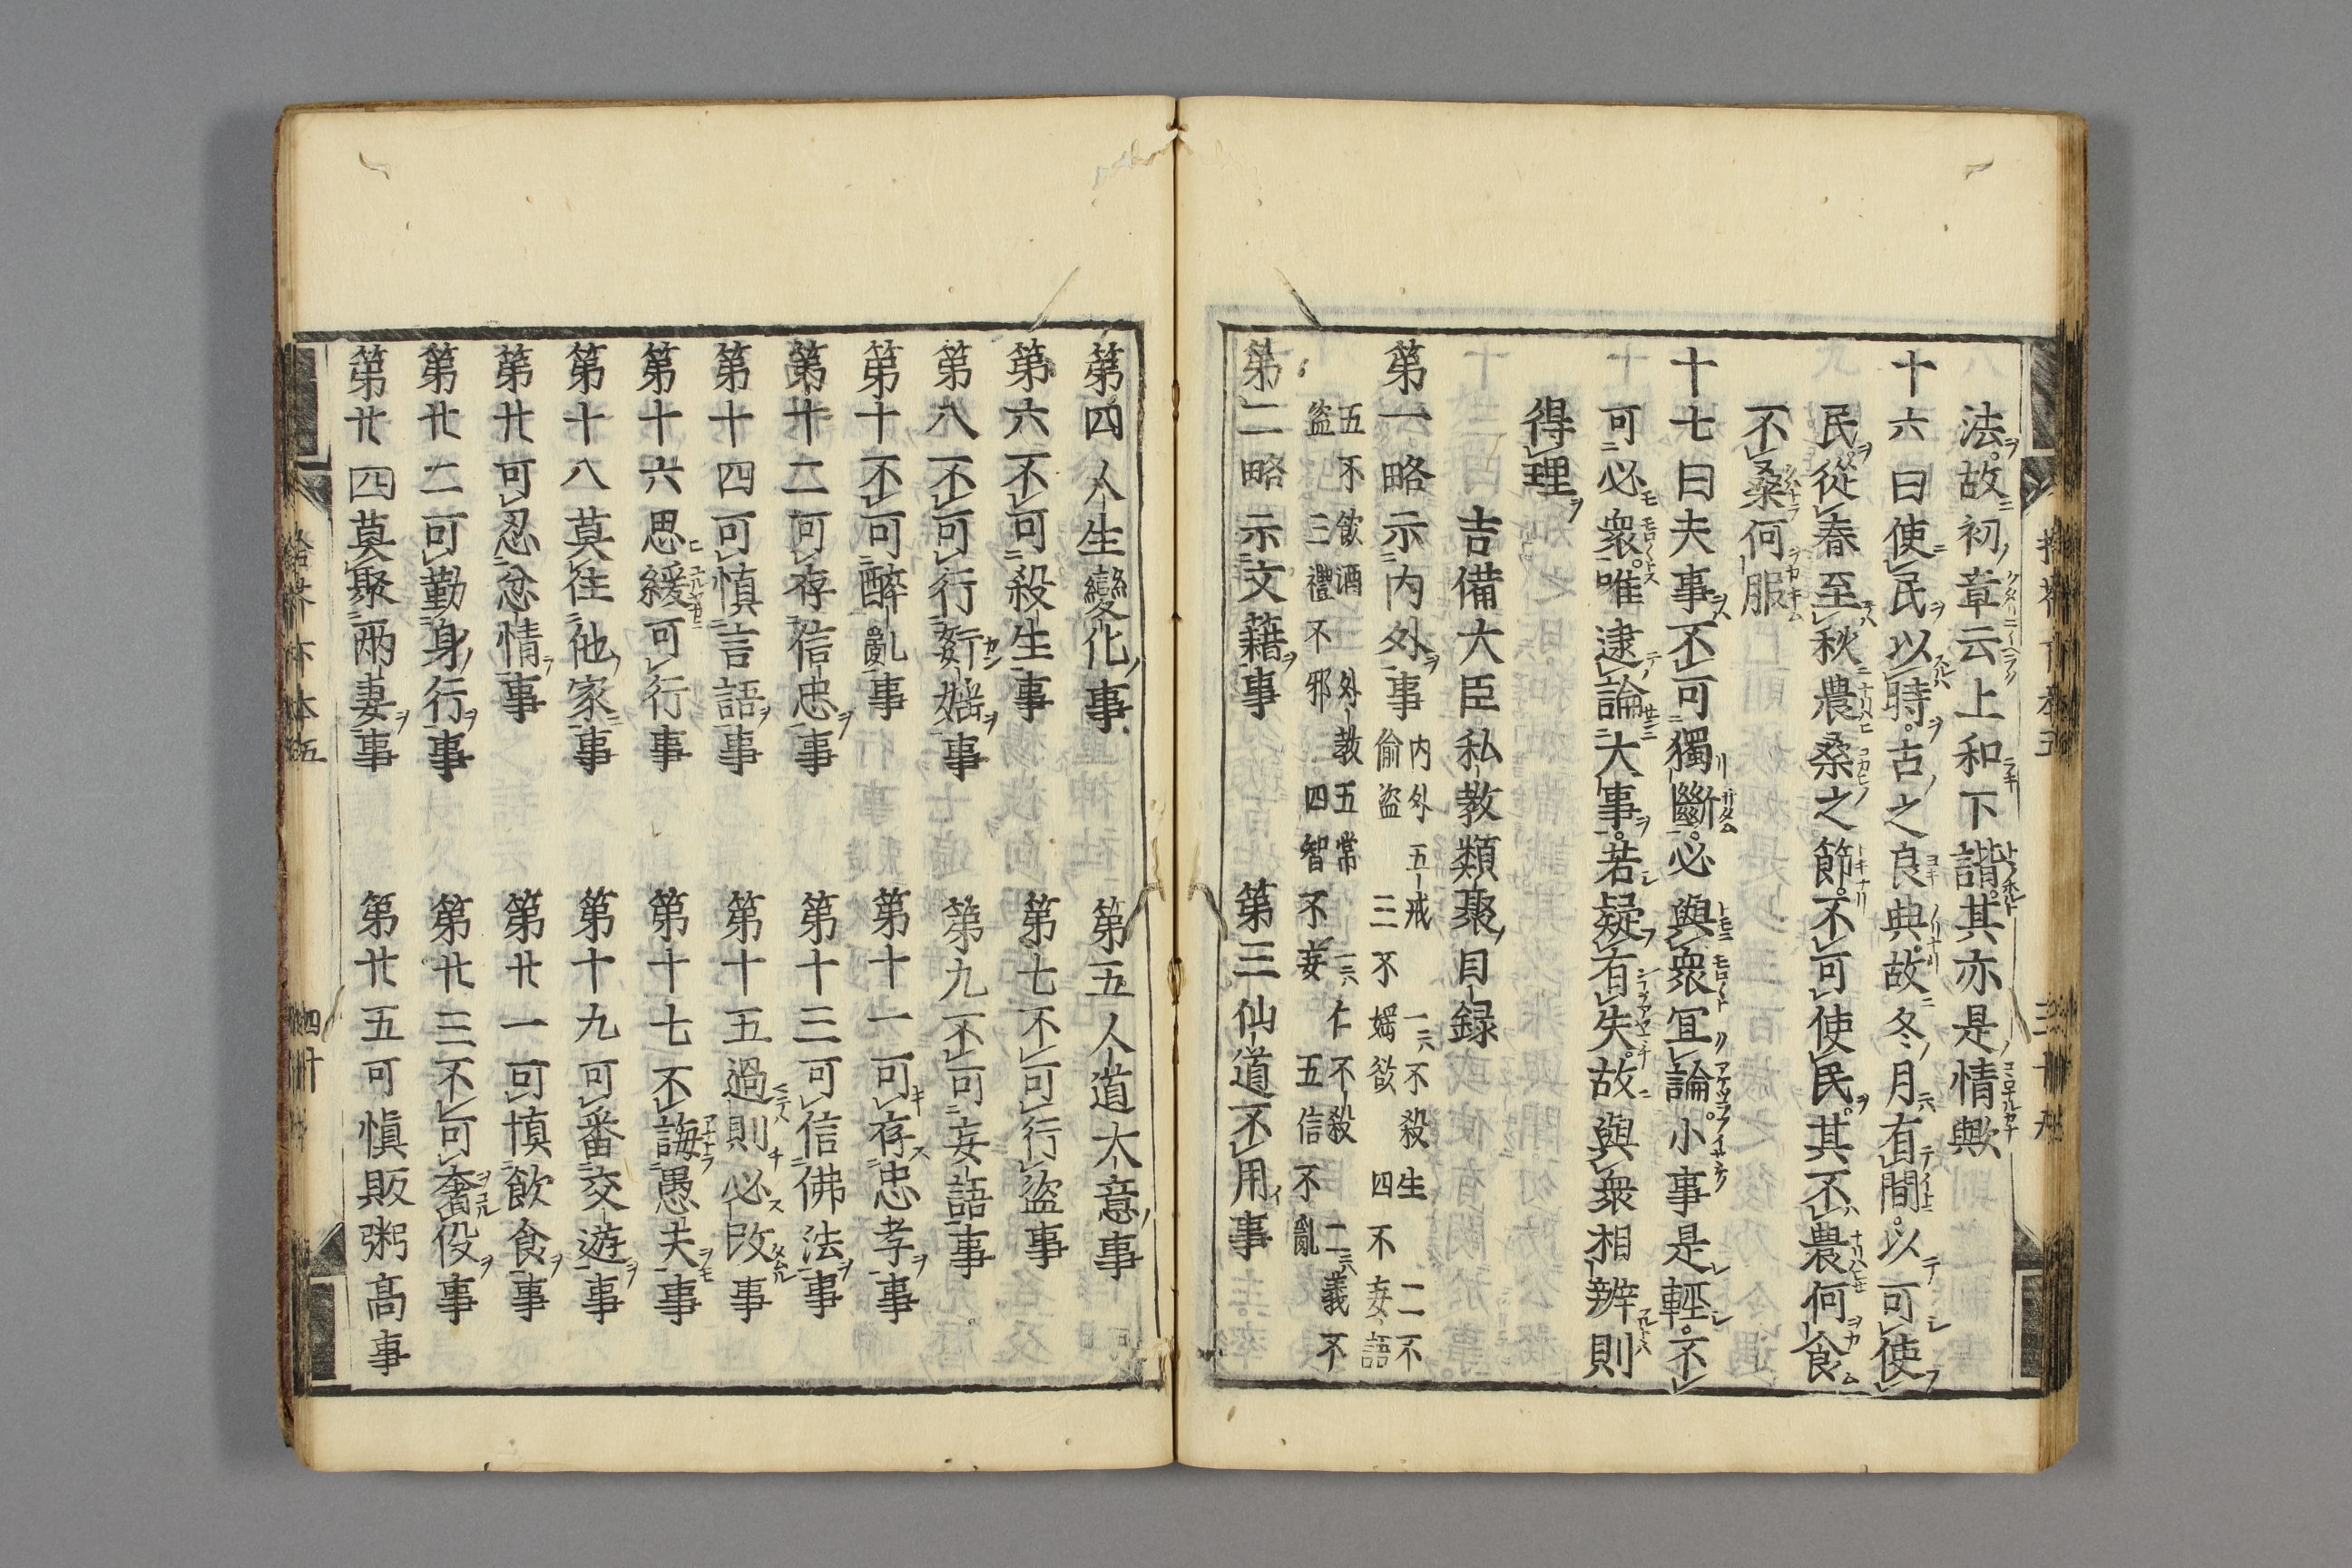 法故初章云上和下諧其亦是情歟
十六曰使民以時古之良典故冬月有間以可使
民從春至秋農桑之節不可使民其不農何食
不桑何服
十七曰夫事不可獨斷必與衆宜論小事是輕不
可必衆唯逮論大事若疑有失故與衆相辨則
得理
吉備大臣私教類聚目録
第一略示内外事
内外五戒一六不殺生二不
偷盗三不婬欲四不妄語
五不飲酒外教五常一六仁不殺二六義不
盗三禮不邪四智不妄五信不亂
第二略示文籍事　第三仙道不用事
第四人生變化事　第五人道大意事
第六不可殺生事　第七不可行盗事
第八不可行姧婬事　第九不可妄語事
第十不可醉亂事　第十一可存忠孝事
第十二可存信忠事　第十三可信佛法事
第十四可慎言語事　第十五過則必改事
第十六思緩可行事　第十七不誨愚夫事
第十八莫往他家事　第十九可番交遊事
第廿可忍忿情事　第廿一可慎飲食事
第廿二可勤身行事　第廿三不可奢役事
第廿四莫聚兩妻事　第廿五可慎販粥髙事
四十